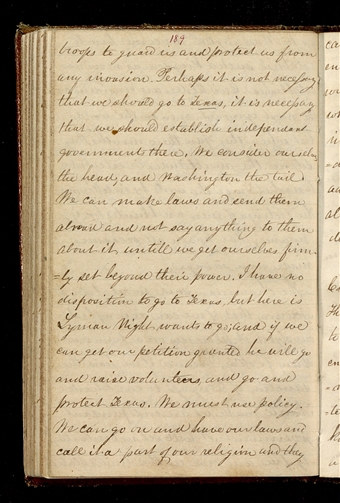 189
troops to guard us and protect us from
any invasion. Perhaps it is not necessary
that we should go to Texas, it is necessary
that we should establish independant
governments there, We consider ourselves
the head, and Washington the tail
We can make laws and send them
abroad and not say anything to them
about it, untill we get ourselves firm-
=ly set beyond their power. I have no
disposition to go to Texas, but here is
Lyman Wight wants to go, and if we
can get our petition granted he will go
and raise volunteers, and go and
protect Texas. We must use policy.
We can go on and have our laws and
call it a part of our religion and they